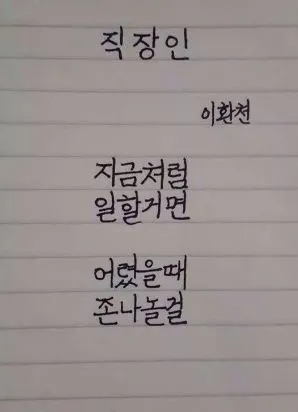 직장인
이환천
자금처럼
일할거면
어렸을때
존나놀걸